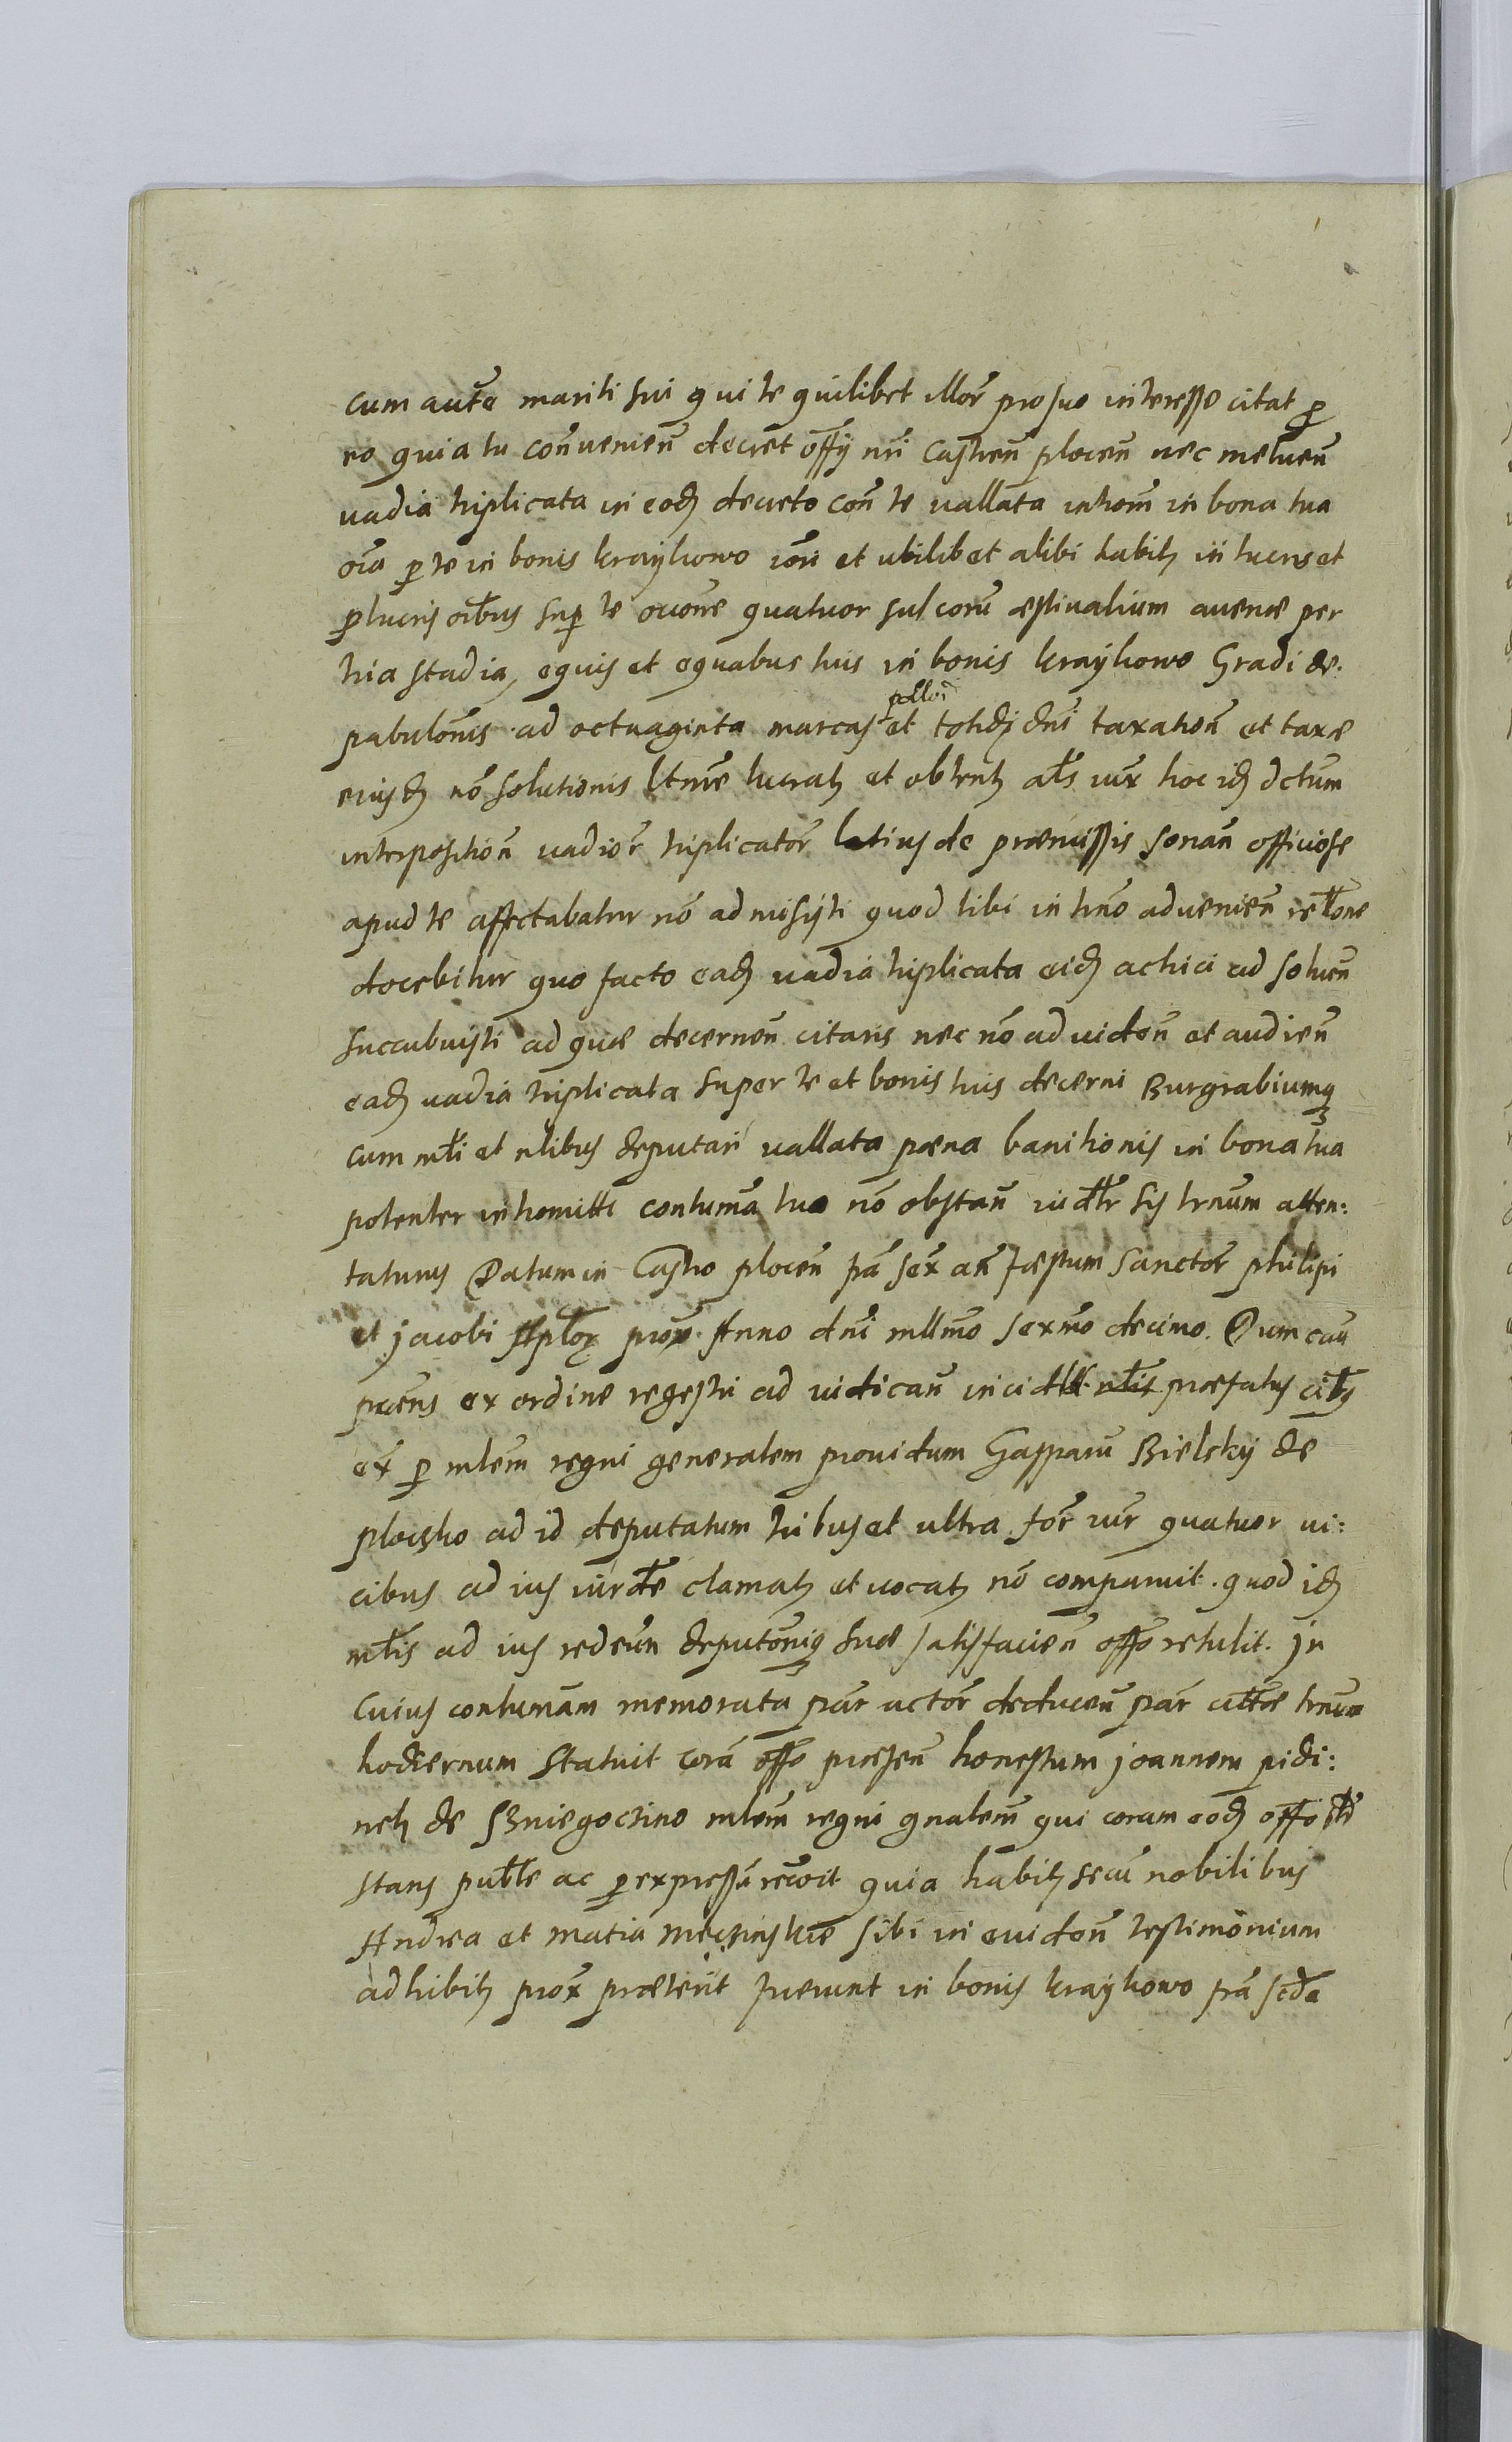 cum aut͠e mariti sui qui te quilibet illor͠ pro suo interesse citat p
eo quia tu con͠uenien͠ decret͠ off͠y nr͠i Castren͠ plocen͠ nec metuen͠
uadia triplicata in eod͠ decreto con͠ te vallata introm͠ in bona tua
oi͠a p te in bonis kraykowo io͠ri et ubilibet alibi habit͠ in lucris et
plucris oi͠bus sup te o͠ccone quatuor sulcoru͠ æstiualium auenæ per
tria stadia, equis et equabus tuis in bonis kraykowo Gradi de.
pollon͠
pabulon͠is ad octuaginta marcas et totid͠ dn͠i taxation͠ et taxæ
eiusd͠ no͠ solutionis lucrat͠ et obtent͠ al͠s iux͠ hoc id͠ dctum͠
interposition͠ uadior͠ triplicator͠ latius de præmissis sonan͠ officiose
apud te affectabatur no͠ admisisti quod tibi in tn͠o aduenien͠ rel͠one
docebitur quo facto ead͠ uadia triplicata eid͠ actrici ad soluen͠
succubuisti ad quæ decernen͠ citaris nec no͠ ad uiden͠ et audien͠
ead͠ uadia triplicata super te et bonis tuis decerni Burgrabiumq
cum ml͠i et nl͠ibus deputari vallata pæna banitionis in bona tua
potenter intromitti contuma͠ tua no͠ obstan͠ iud͠lr sis trn͠um atten:
taturus Datum in Castro plocen͠ fr͠a sex͠ an͠ fæstum sanctor͠ philipi
et jacobi Apl͠or prox͠ Anno dn͠i mllm͠o sexm͠o decimo. Dum cau͠
præns ex ordine regestri ad iudican͠ incid præfatus cit͠us
ex͠ p mlem͠ regni generalem prouidum Gasparu͠ Bielsky de
ploczko ad id deputatum tribus et ultra for͠ iur͠ quatuor ui:
cibus ad ius iurd͠te clamat͠ et vocat͠ no͠ comparuit. quod id͠
ml͠is ad ius redeun͠ deputon͠isq suæ satisfacien͠ off͠o retulit. jn
cuius contuma͠m memorata par͠ actor͠ deducen͠ par͠ cit͠tæ trn͠um
hodiernum statuit cora͠ off͠o præsen͠ honestum joannem pidi:
nek de Sniegoczino mlem͠ regni gn͠alem͠ qui coram eod͠ off͠o
stans publ͠e ac p expressu͠ reco͠it quia habit͠ secu͠ nobilibus
Andrea et Matia Mecziński͠e sibi in euiden͠ testimonium
adhibit͠ prox͠ præterit͠ fuerunt in bonis kraykowo fr͠a sc͠da